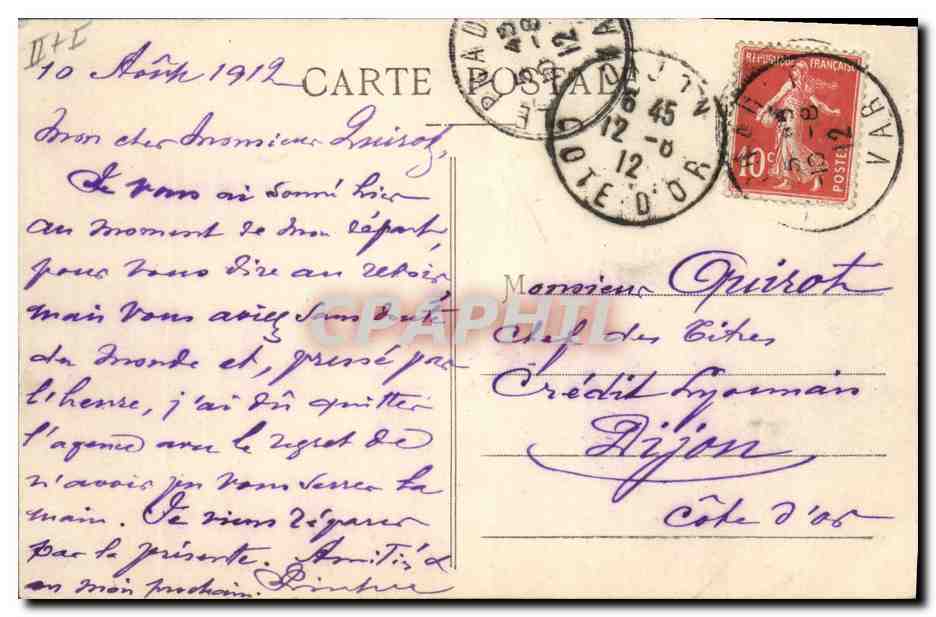 II + I
10 Août 1912
CARTE POSTALE
Mon cher Monsieur Quirot,
Je vous ai sonné hier
au moment de mon départ
pour vous dire au revoir,
mais vous aviez sans doute
du monde et, pressé par
l'heure, j'ai dû quitter
l'agence avec le regret de
n'avoir pu vous serrer la
main. Je viens réparer
par la présente. Amitiés &
en mon prochain.
Monsieur Quirot
Chef des Titres
Crédit Lyonnais
Dijon
Côte d'or
REPUBLIQUE FRANÇAISE
10 c
POSTES
DIJON
6 45
12 -8
12
COTE D'OR
VAR
12
CPAPHIL